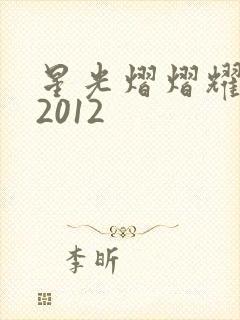 星光熠熠耀
2012
李昕